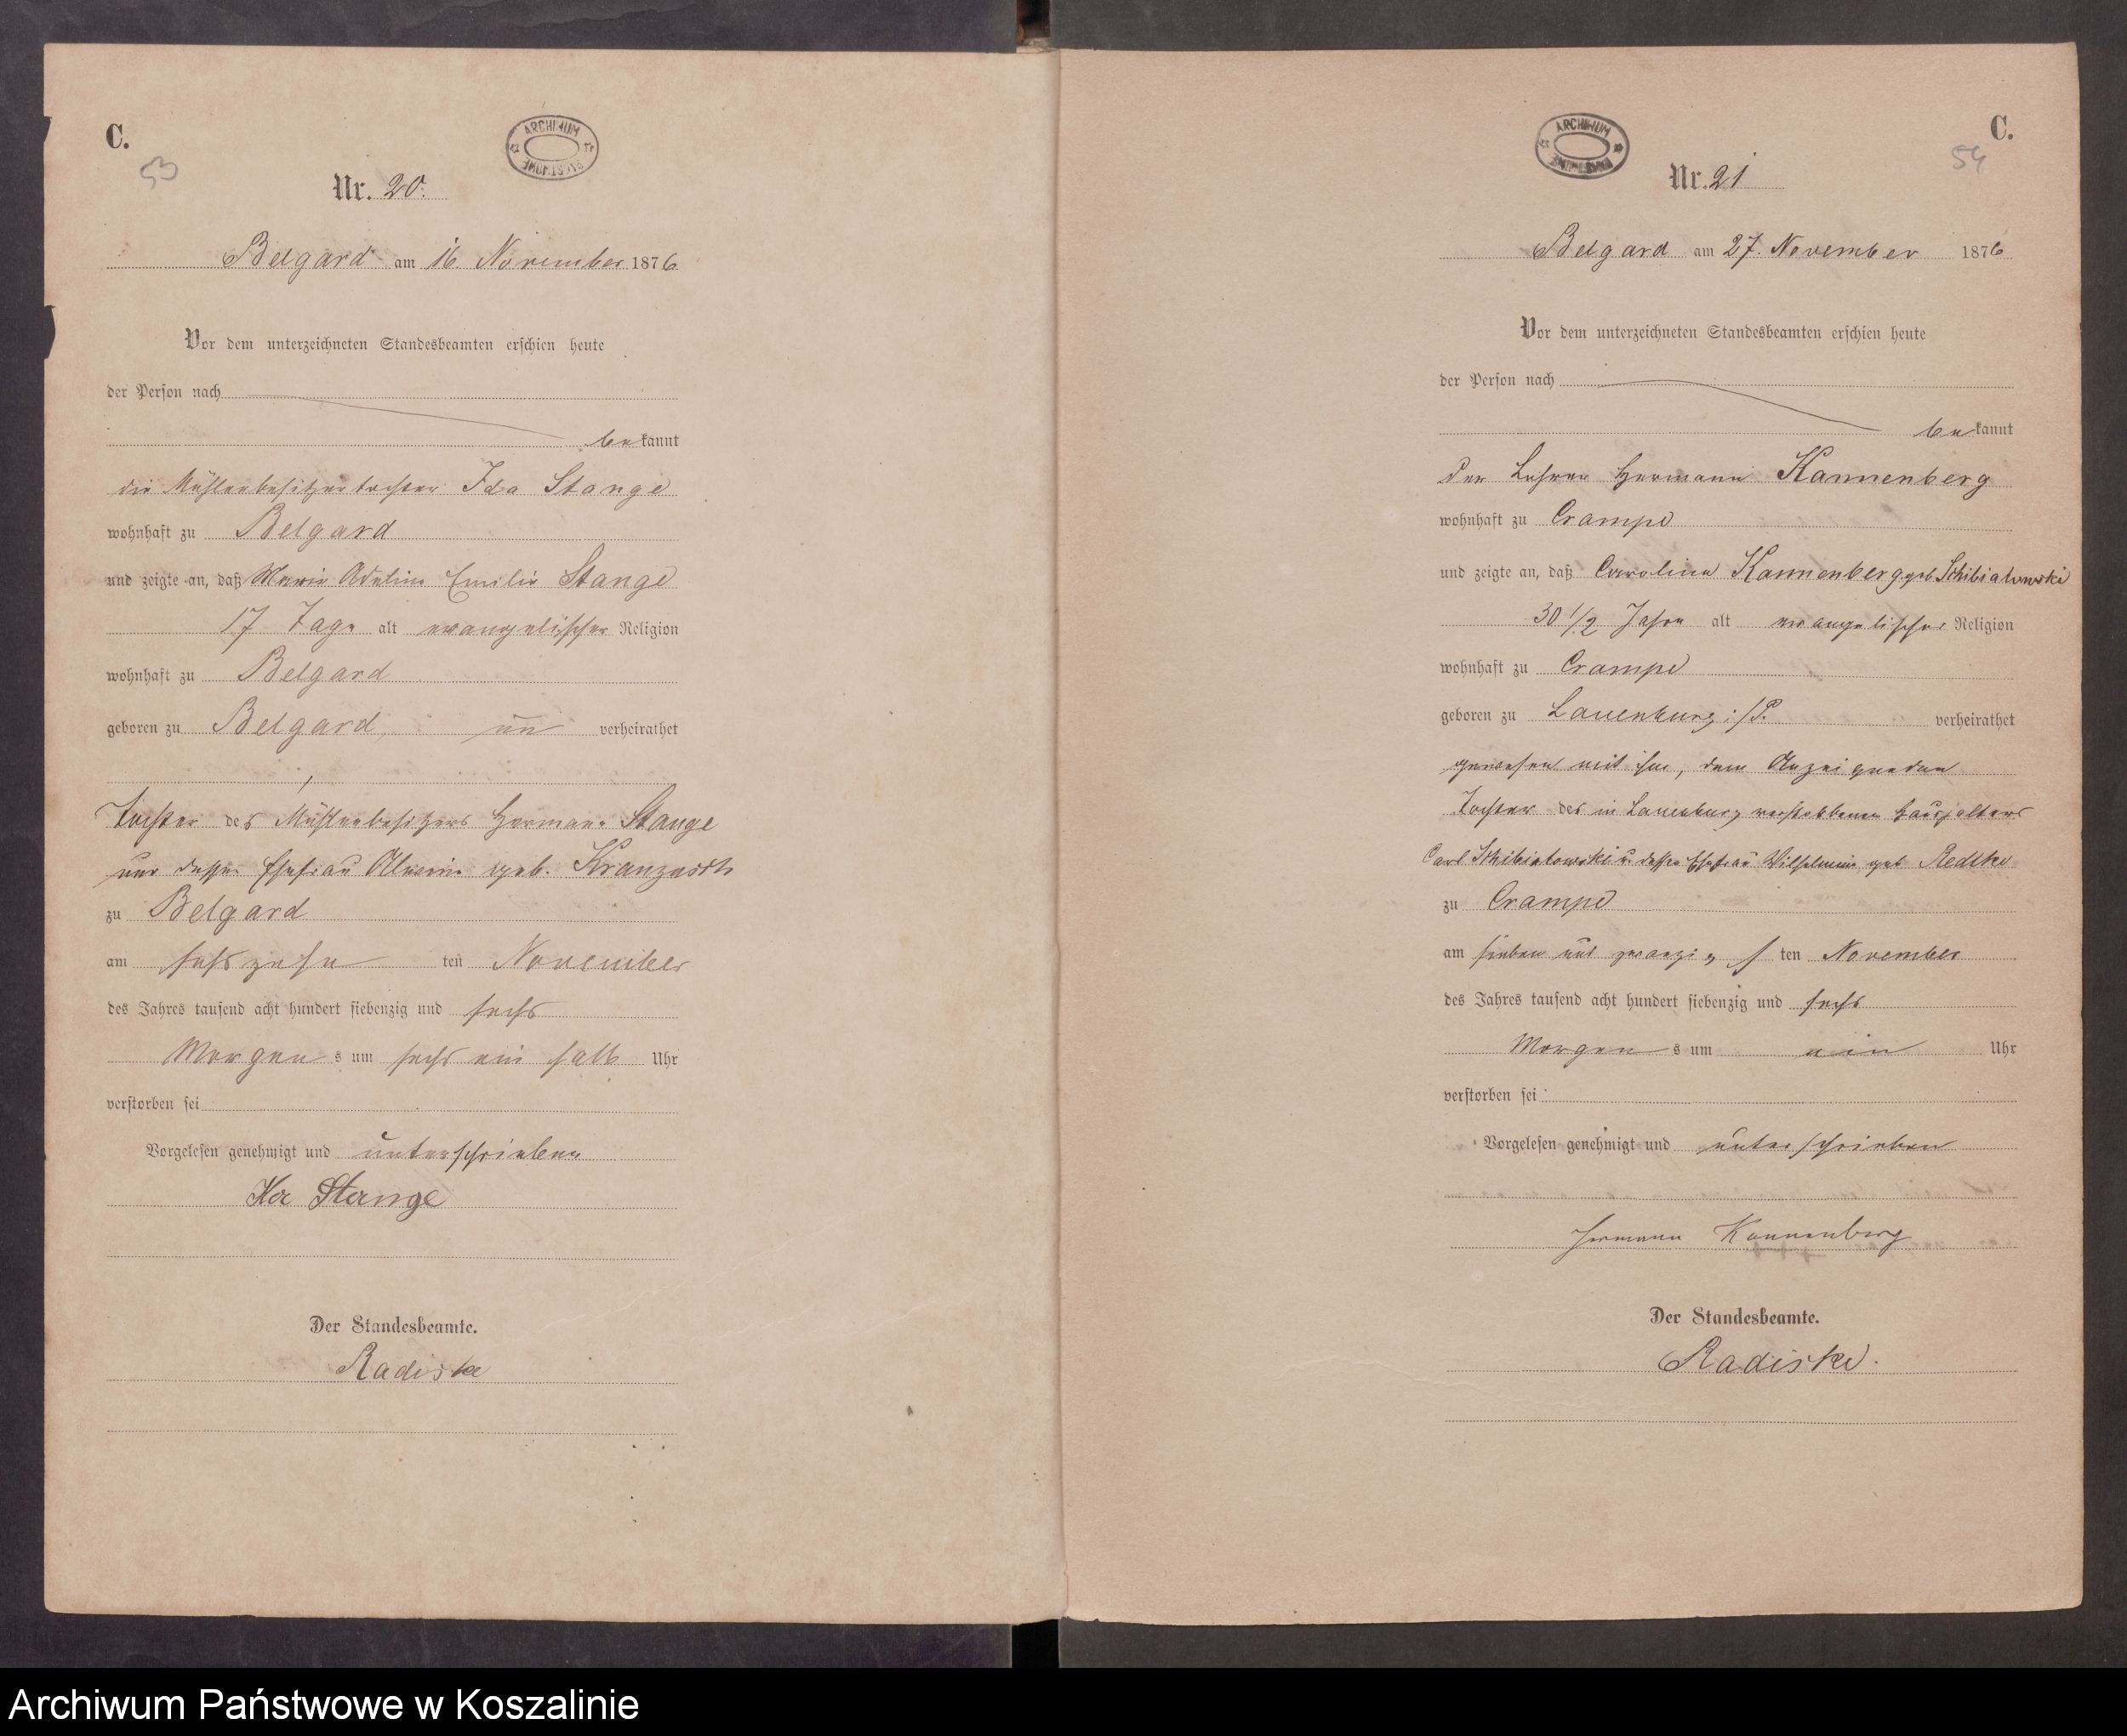 C.
53
ARCHIWUM PAŃSTWOWE
Nr. 20.
Belgard am 16. November 1876
Vor dem unterzeichneten Standesbeamten erschien heute
der Person nach
bekannt
die Mühlenbesitzertochter Ida Stange
wohnhaft zu Belgard
und zeigte an, daß Marie Adeline Emilie Stange
17 Tage alt evangelischer Religion
wohnhaft zu Belgard
geboren zu Belgard, un verheirathet
Tochter des Mühlenbesitzers Hermann Stange
und dessen Ehefrau Alwine geb.
zu Belgard
am sechszehn ten November
des Jahres tausend acht hundert siebenzig und sechs
Morgens um sechs ein halb Uhr
verstorben sei
Vorgelesen genehmigt und unterschrieben
Ida Stange
Der Standesbeamte.
Radiske
C.
54
ARCHIWUM PAŃSTWOWE
Nr. 21
Belgard am 27. November 1876
Vor dem unterzeichneten Standesbeamten erschien heute
der Person nach
bekannt
der Lehrer Hermann Kannenberg
wohnhaft zu Crampe
und zeigte an, daß Caroline Kannenberg geb. Schibialowski
30 1/2 Jahre alt evangelischer Religion
wohnhaft zu Crampe
geboren zu Lauenburg i/P. verheirathet
gewesen mit ihm, dem Anzeigenden
Tochter des in Lauenburg verstorbenen Haushalters
Carl Schibialowski u. dessen Ehefrau Wilhelmine geb. Redtke
zu Crampe
am sieben und zwanzigsten November
des Jahres tausend acht hundert siebenzig und sechs
Morgens um ein Uhr
verstorben sei
Vorgelesen genehmigt und unterschrieben
Hermann Kannenberg
Der Standesbeamte.
Radiske.
Archiwum Państwowe w Koszalinie